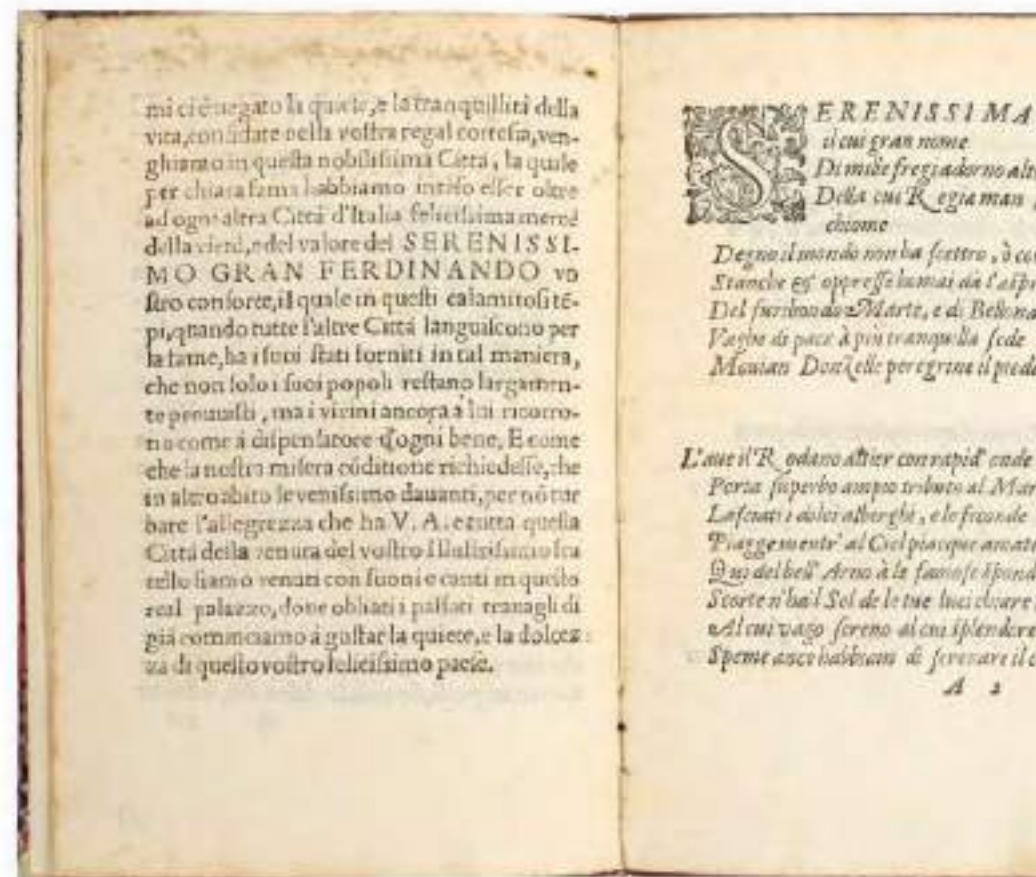 mi ci è negato la quiete, e la tranquillità della
vita, confidate nella vostra regal cortesia, ven-
ghiamo in questa nobilissima Città, la quale
per chiara fama habbiamo inteso esser oltre
ad ogni altra Città d'Italia felicissima mercé
della virtù, e del valore del SERENISSI-
MO GRAN FERDINANDO vo
stro consorte, il quale in questi calamitosi tē-
pi, quando tutte l'altre Città languiscono per
la fame, ha i suoi stati forniti in tal maniera,
che non solo i suoi popoli restano largamen-
te proueduti, ma i vicini ancora à lui ricorro-
no come à dispensatore d'ogni bene, E come
che la nostra misera cōditione richiedesse, che
in altro abito le venissimo dauanti, per nō tur
bare l'allegrezza che ha V. A. e tutta questa
Città della venuta del vostro Illustrissimo fra
tello siamo venuti con suoni e canti in questo
real palazzo, doue obliati i passati trauagli di
già cominciamo à gustar la quiete, e la dolcez
za di questo vostro felicissimo paese.
SERENISSIMA
il cui gran nome
Di mille fregi adorno
Della cui Regia man
chiome
Degno il mondo non ha scettro, ò
Stanche & oppresse homai da
Del furibondo Marte, e di Bellona
Vaghe di pace à più tranquilla sede
Mouian Donzelle peregrine il piede
L'aue il Rodano altier con rapid' onde
Porta superbo ampio tributo al Mar
Lasciati i dolci alberghi, e le feconde
Piagge mentr' al Ciel piacque
Qui del bell' Arno à le famose sponde
Scorte n'ha il Sol de le tue luci chiare
Al cui vago sereno al cui splendore
Speme anco habbiam di serenare il
A 2